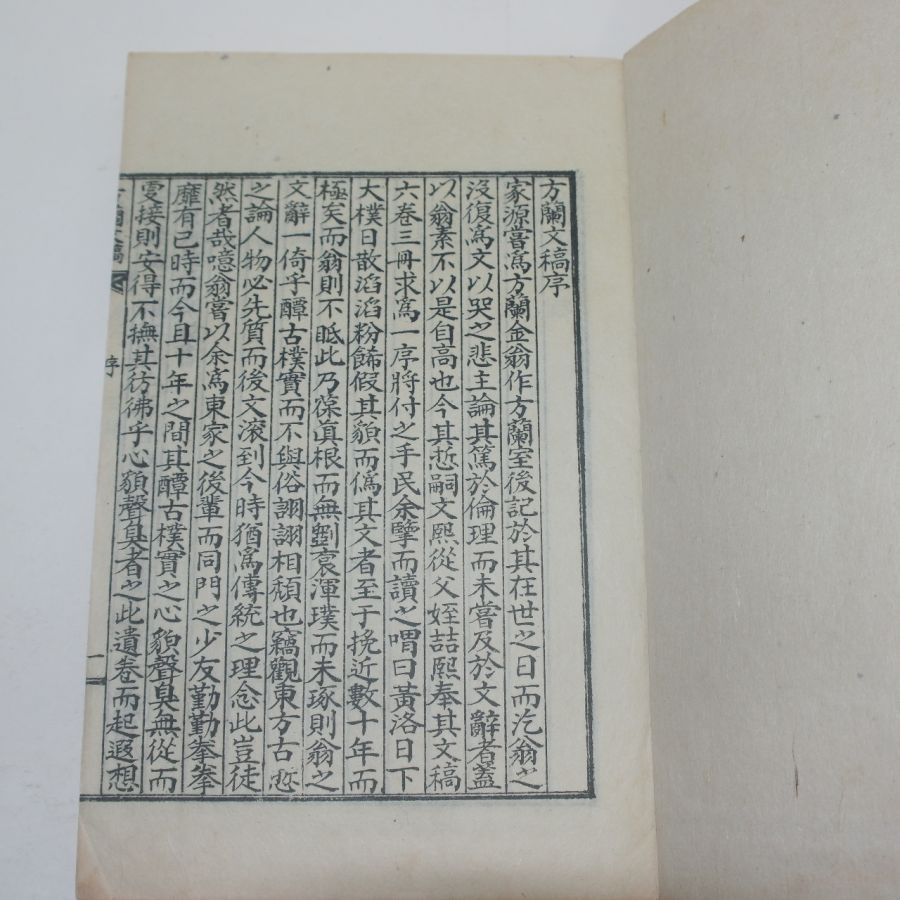 方蘭文稿序
家源嘗爲方蘭金翁作方蘭室後記於其在世之日而汔翁之
沒復爲文以哭之悲主論其篤於倫理而未嘗及於文辭者蓋
以翁素不以是自高也今其悊嗣文熙從父姪喆熙奉其文稿
六卷三冊求爲一序將付之手民余擎而讀之喟曰黃洛日下
大樸日散滔滔粉餙假其貌而僞其文者至于挽近數十年而
極矣而翁則不眡此乃葆眞根而無劉裒渾璞而未琢則翁之
文辭一倚乎醰古樸實而不與俗詡詡相頹也竊觀東方古悊
之論人物必先質而後文滚到今時猶爲傳統之理念此豈徒
然者哉噫翁嘗以余爲東家之後輩而同門之少友勤勤拳拳
靡有已時而今且十年之間其醰古樸實之心貌聲臭無從而
更接則安得不撫其彷彿乎心貌聲臭者之此遺卷而起遐想
方蘭文稿
序
一